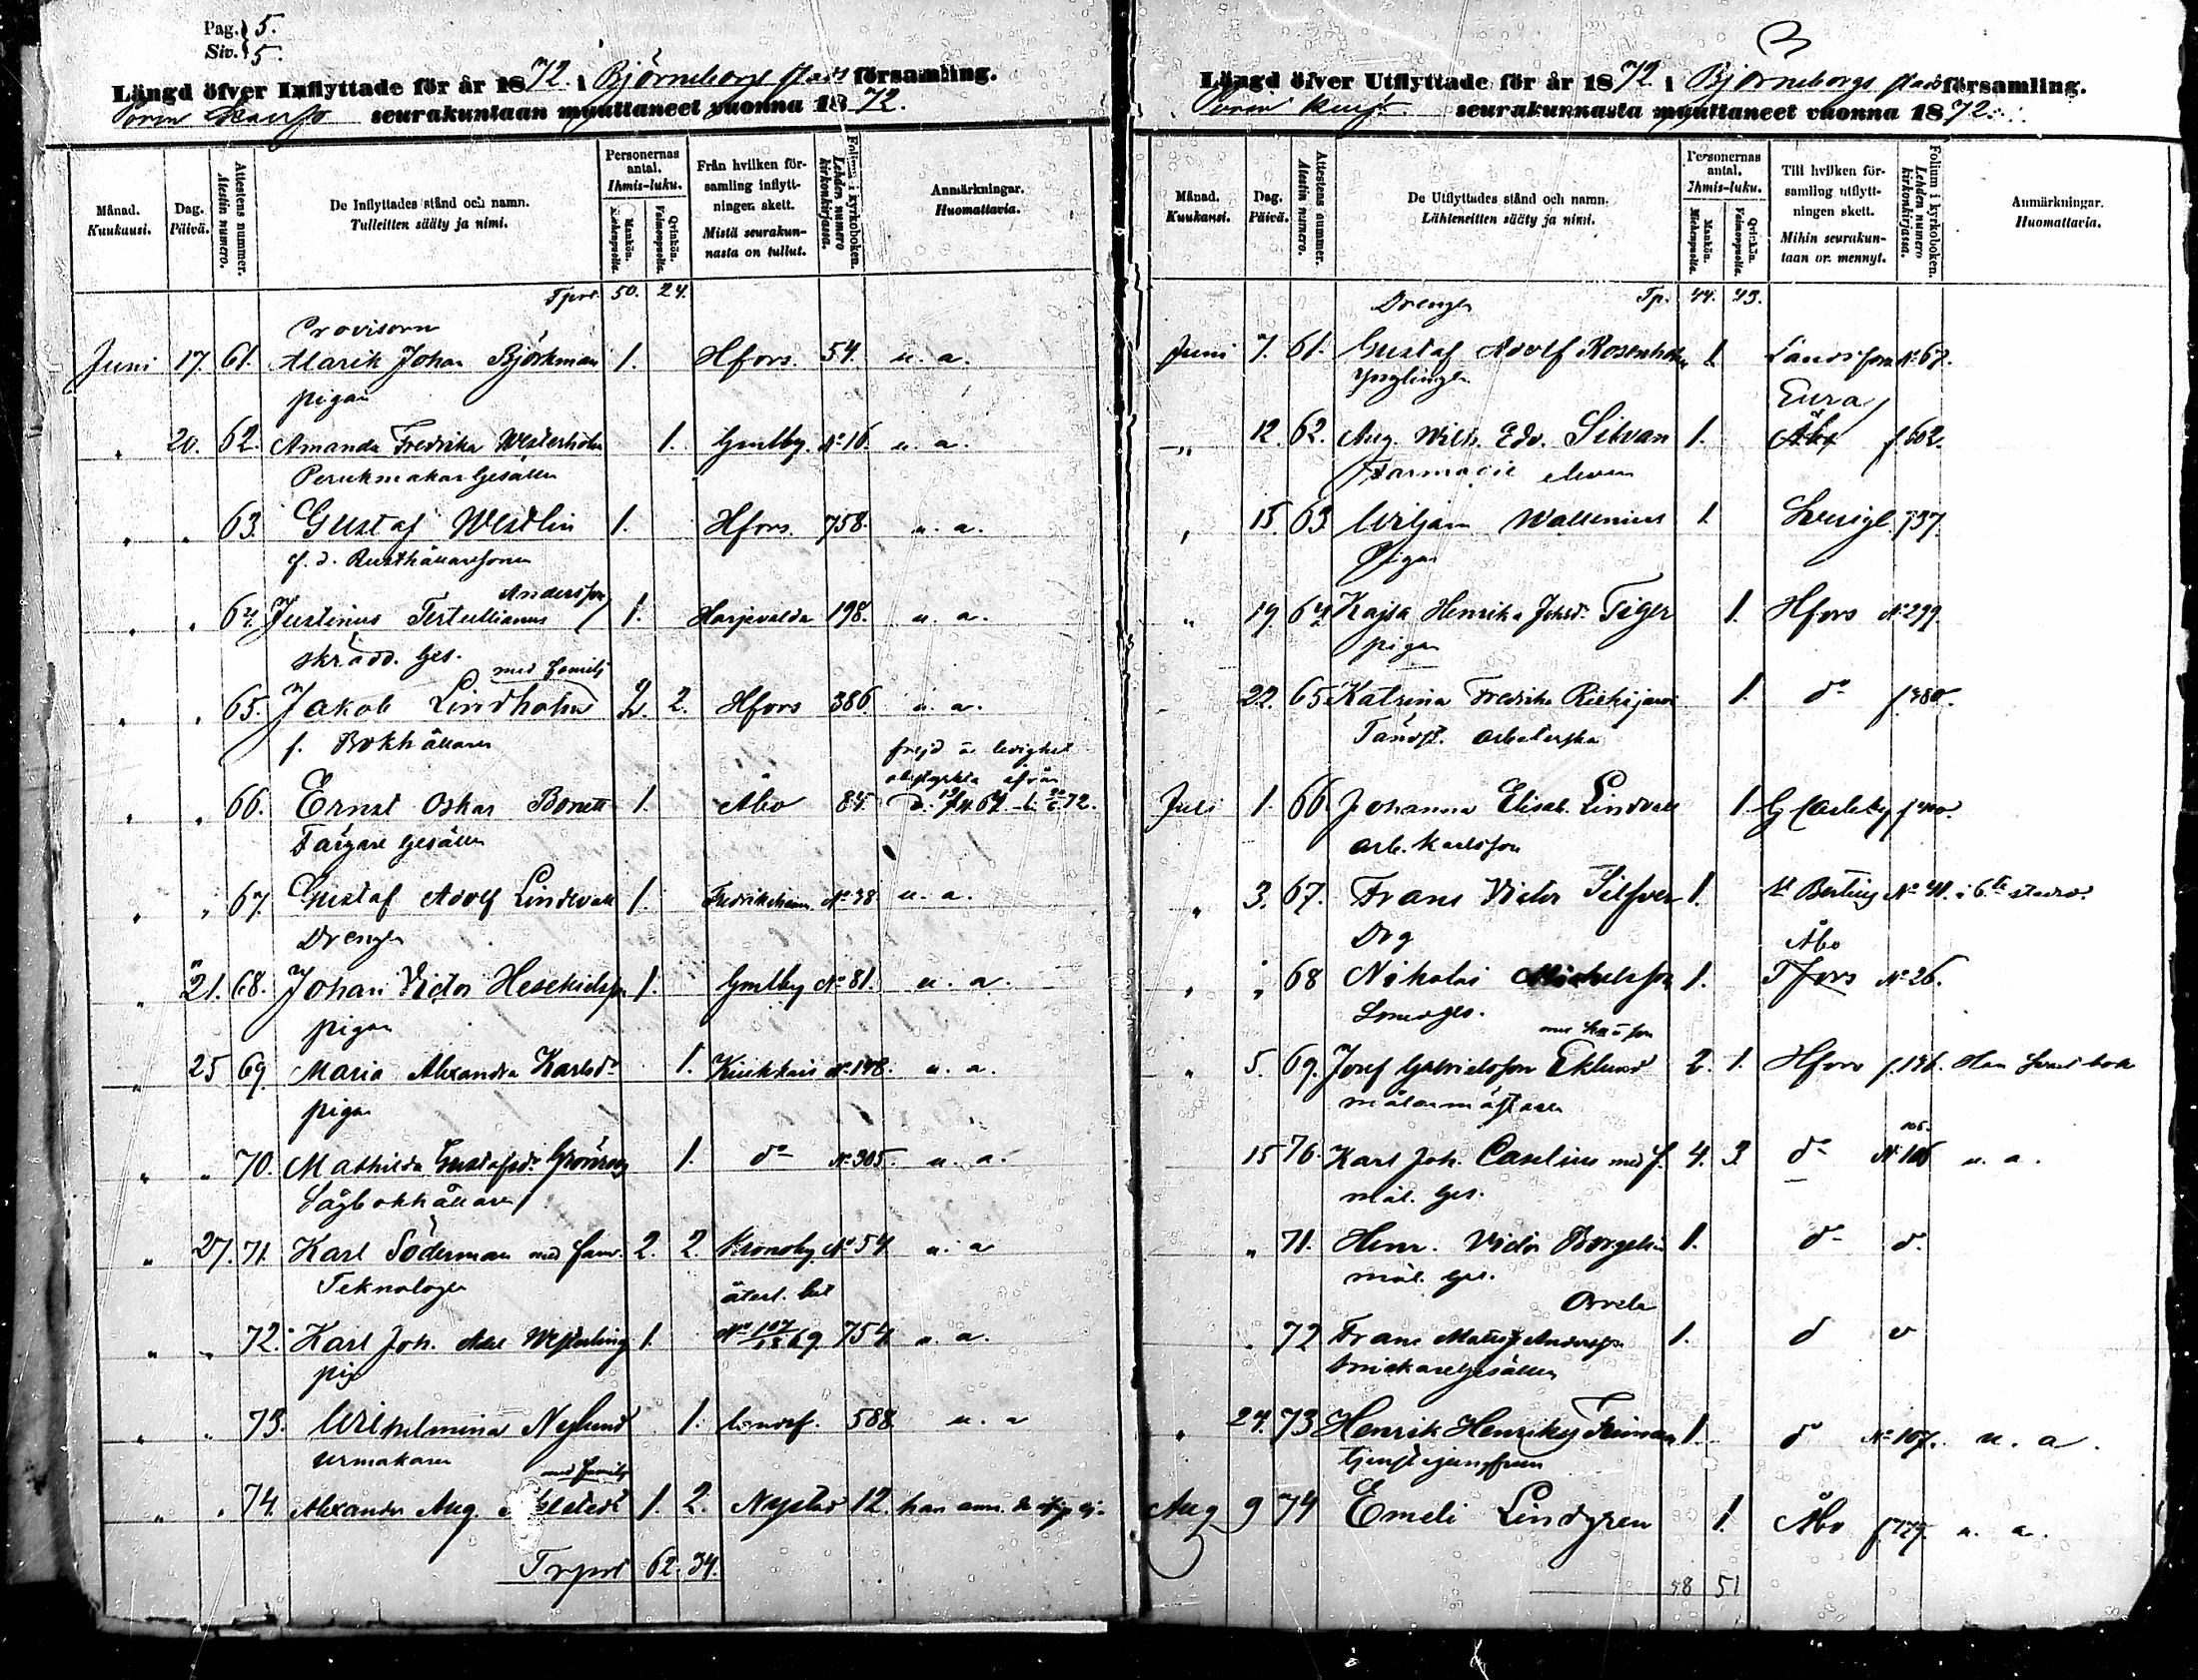 Pag. 5.
Siv. 5.
Längd öfver Inflyttade för år 1872. i Björneborgs stads församling.
Porin seurakuntaan muuttaneet vuonna 1872.
Månad. Kuukausi.
Dag. Päivä.
Attestens nummer. Atestin numero.
De Inflyttades stånd och namn. Tulleitten sääty ja nimi.
Personernas antal. Ihmis-luku.
Mankön. Miehenpuolia.
Qvinkön. Vaimonpuolia.
Från hvilken församling inflyttningen skett. Mistä seurakunnasta on tullut.
Folium i kyrkoboken. Lehden numero kirkonkirjassa.
Anmärkningar. Huomattavia.
Tprt 50. 24.
Provisorn
Juni 17. 61. Alarik Johan Björkman 1. Hfors. 54. u. a.
pigan
" 20. 62. Amanda Fredrika Westerholm 1. Gmlby. No 16 u. a.
Perukmakar Gesällen
" " 63. Gustaf Westlin 1. Hfors. 758. u. a.
f. d. Rusthållaresonen
Andersson
" " 64. Justinus Tertullianus 1. Harjevalda 198. u. a.
skrädd. Ges. med familj
" " 65. Jakob Lindholm 2. 2. Hfors 386. u. a.
f. Bokhållaren
frejd o. ledighet
" " 66. Ernst Oskar Bonett 1. Åbo 84.
Färgare Gesällen
" " 67. Gustaf Adolf Lindwall 1. Fredrikshamn No 38 u. a.
Drengen
" 21. 68. Johan Victor Hesekielsson 1. Gmlby No 81. u. a.
pigan
" 25 69. Maria Alexandra Karlsdr 1. Kiukkais No 198. u. a.
pigan
" " 70. Mathilda Gustafsdr Grönroos 1. do No 305. u. a.
Sågbokhållaren
" 27. 71. Karl Söderman med fam. 2. 2. Kronoby No 54 u. a
Teknologen
återl. bet
" " 72. Karl Joh. Axel Westerling 1. 69 754 u. a.
pig
" " 73. Wilhelmina Nylund 1. landsf. 588 u. a
Urmakaren med familj
" " 74. Alexander Aug. 1. 2. Nystad 12.
Trprt 62. 34.
3
Längd öfver Utflyttade för år 1872 i Björneborgs stads församling.
Porin seurakunnasta muuttaneet vuonna 1872.
Månad. Kuukausi.
Dag. Päivä.
Attestens nummer. Atestin numero.
De Utflyttades stånd och namn. Lähteneitten sääty ja nimi.
Personernas antal. Ihmis-luku.
Mankön. Miehenpuolia.
Qvinkön. Vaimonpuolia.
Till hvilken församling utflyttningen skett. Mihin seurakuntaan on mennyt.
Folium i kyrkoboken. Lehden numero kirkonkirjassa.
Anmärkningar. Huomattavia.
Drengen Tp. 44. 43.
Juni 7. 61. Gustaf Adolf Rosenholm 1. Landsförs No 67.
Ynglingen Eura
" 12. 62. Aug. Wilh. Edv. Silvan 1. Åbo f. 602.
Farmacie eleven
" 15. 63. Wiljam Wallenius 1. Sverige. 737.
Pigan
" 19. 64. Kajsa Henrika Johsdr Tiger 1. Hfors No 299.
pigan
22. 65. Katrina Fredrika 1. do f. 380.
Tändst. arbeterska
Juli 1. 66. Johanna Elisab. Lindvall 1. G Carleby
arb. Karlsson
" 3. 67. Frans Victor Silfver 1. No 41. i 6te stadsd.
Drg Åbo
" " 68 Nikolai Michelsson 1. Tfors No 26.
Smedges.
" 5. 69. Josef Gabrielsson Eklund 2. 1. Hfors f. 196.
målarmästaren
15 70. Karl Joh. Caselius med f. 4. 3 do No 106 u. a.
mål. Ges.
" 71. Henr. Victor 1. do d.
mål. ges.
" 72 Frans 1. d
Gesällen
" 24. 73 Henrik 1. d No 107. u. a.
Aug 9 74 Emeli Lindgren 1. Åbo u. a.
58 51